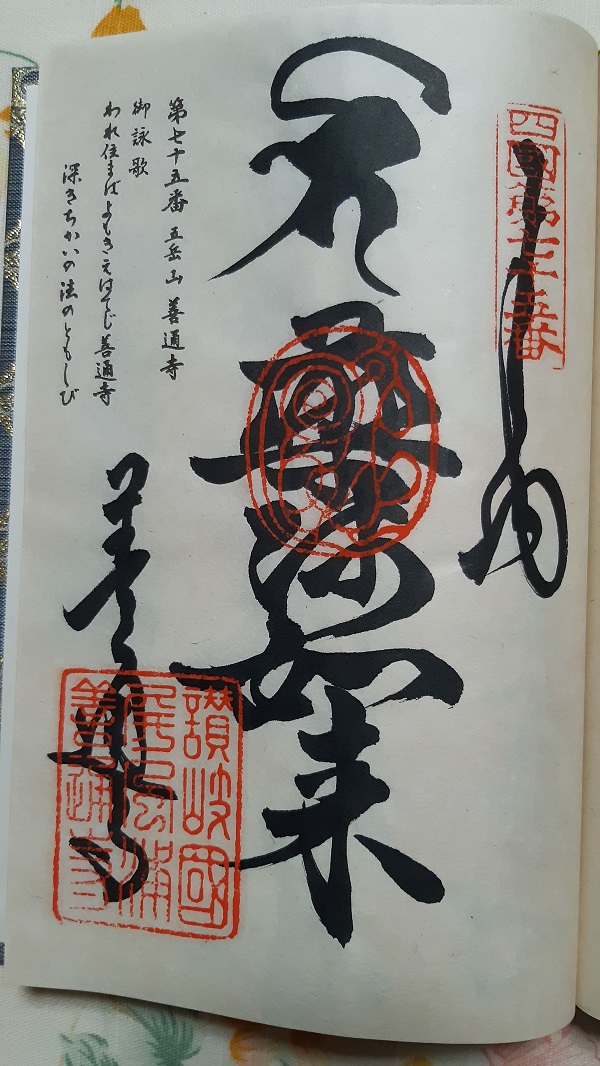 四國第七十五番
奉納
薬師如来
第七十五番 五岳山 善通寺
御詠歌
われ住まばよもきえはてじ善通寺
深きちかいの法のともしび
善通寺
讚岐國
屏風浦
善通寺